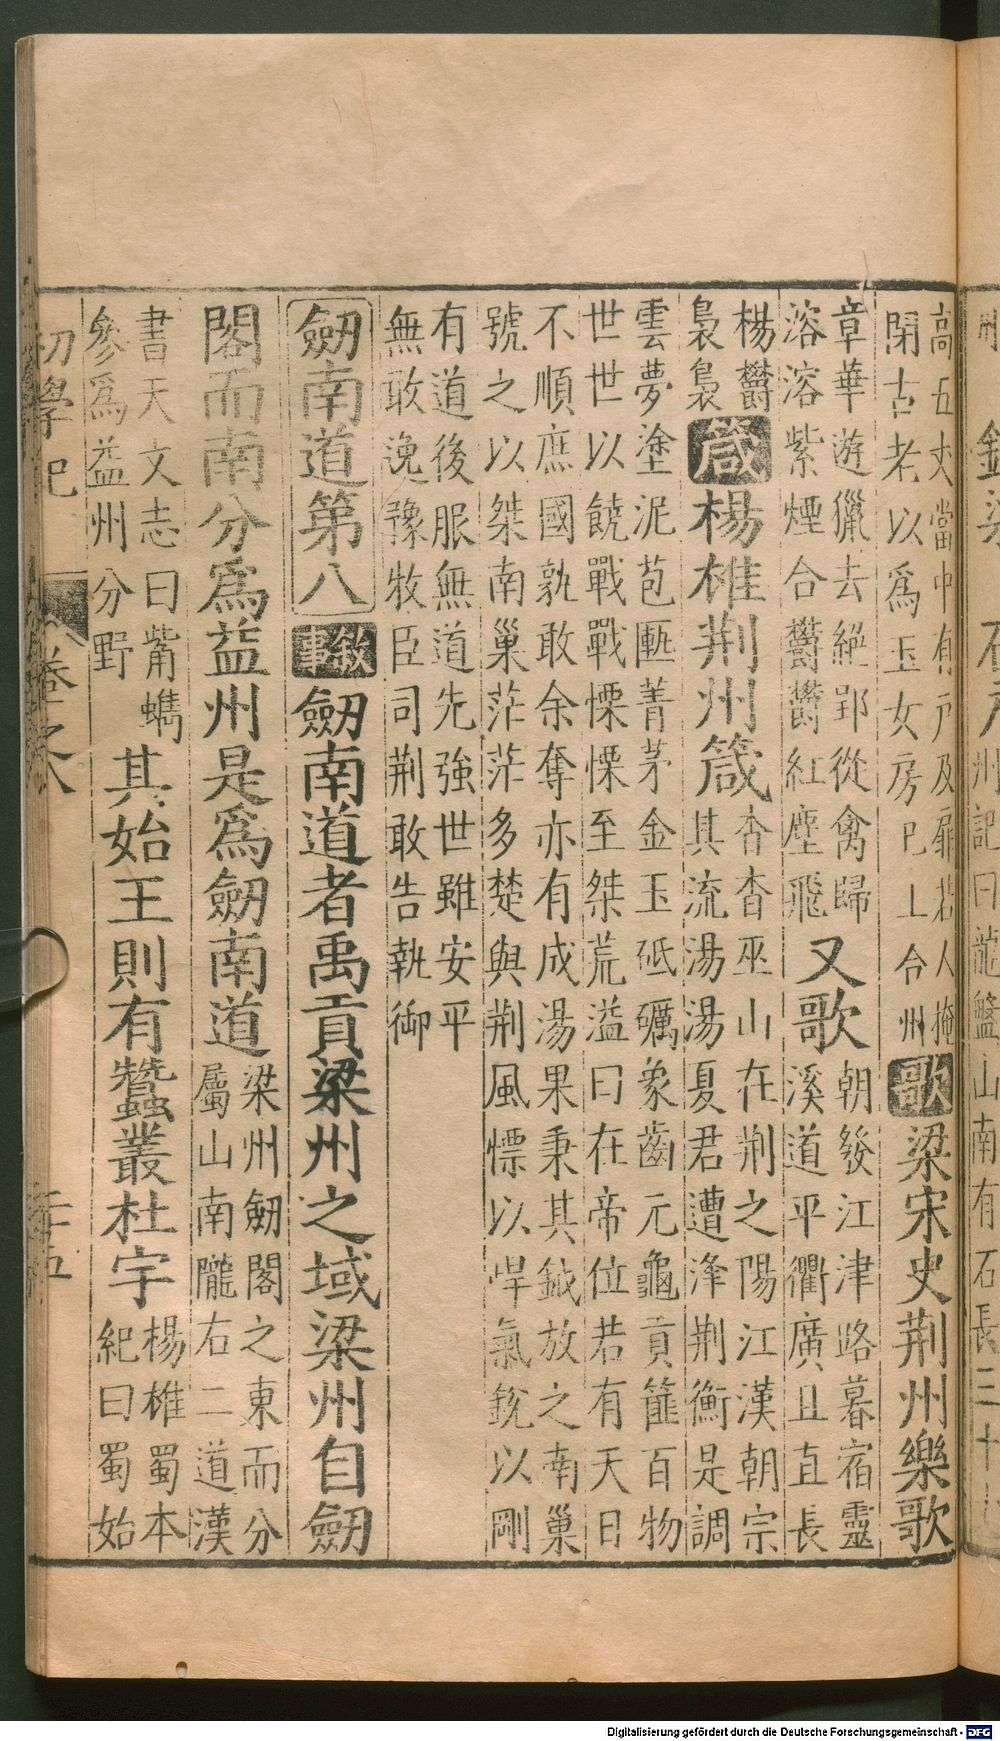 高五丈當中有戶及扉若人掩
閉古老以爲玉女房已上合州
歌梁宋史荆州樂歌
章華遊獵去絕郢從禽歸
溶溶紫煙合鬱鬱紅塵飛
又歌
朝發江津路暮宿靈
溪道平衢廣且直長
楊鬱
裊裊
箴楊雄荆州箴
杳杳巫山在荆之陽江漢朝宗
其流湯湯夏君遭洚荆衡是調
雲夢塗泥苞匭菁茅金玉砥礪象齒元龜貢篚百物
世世以饒戰戰慄慄至桀荒溢曰在帝位若有天日
不順庶國孰敢余奪亦有成湯果秉其鉞放之南巢
號之以桀南巢茫茫多楚與荆風慓以悍氣銳以剛
有道後服無道先強世雖安平
無敢逸豫牧臣司荆敢告執御
劒南道第八
敘事
劒南道者禹貢梁州之域梁州自劒
閣而南分爲益州是爲劒南道
梁州劒閣之東而分
屬山南隴右二道漢
書天文志曰觜蠵
參爲益州分野
其始王則有蠶叢杜宇
楊雄蜀本
紀曰蜀始
初學記
卷之八
二十五
Digitalisierung gefördert durch die Deutsche Forschungsgemeinschaft - DFG